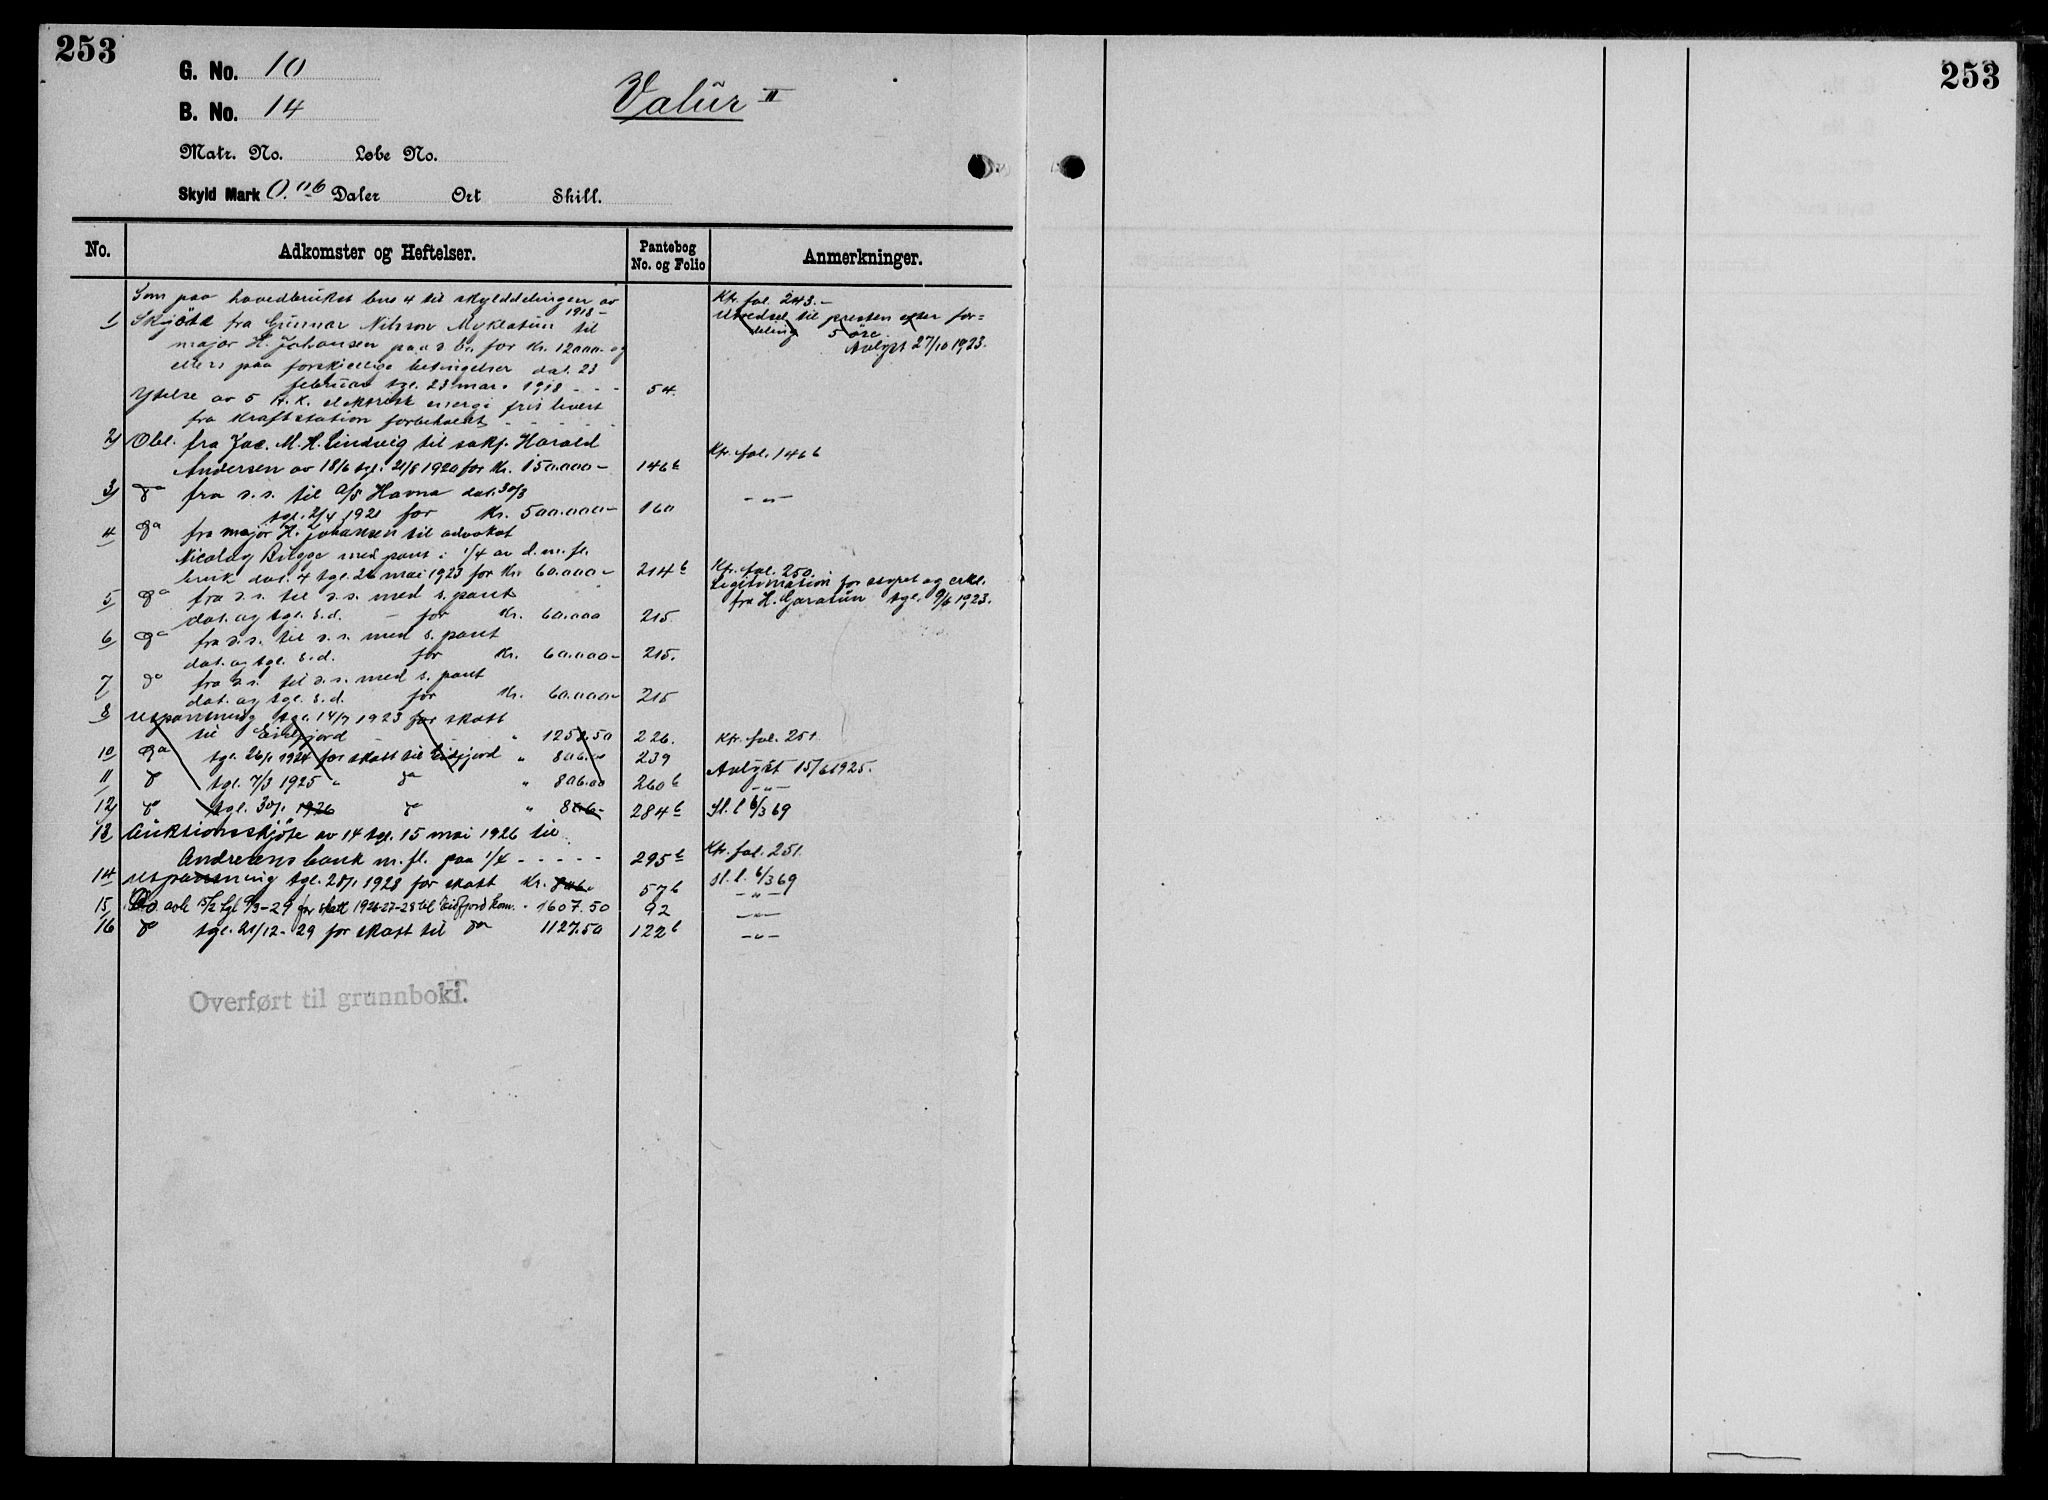 253
253
G. No. 10
B. No. 14
Valûr II
Matr. No. Løbe No.
Skyld Mark 0.06 Daler Ort Skill.
No. Adkomster og Heftelser. Pantebog No. og Folio Anmerkninger.
Som paa hovedbruket bno 4 til skylddelingen av 1918 - Kfr. fol. 243. -
1 Skjöte fra Gunnar Nilsson Myklatun til Utredsel til presten efter for=
major H. Johansen paa s. br. for Kr. 12000.- og deling 5 öre.
ellers paa forskjellige betingelser dat. 23 Avlyst 27/10 1923.
februar tgl. 23 mars 1918 - - - 54.
Ytelse av 5 H.K. elektrisk energi frit levert
fra kraftstation forbeholdt - - - - -
2) Obl. fra Jac. M. H. Lindvig til sakf. Harald
Andersen av 18/6 tgl. 21/8 1920 for Kr. 150.000 - 146b Kfr. fol. 146b
3) do fra s.s. til A/S Havna dat. 30/3 - " -
tgl. 2/4 1921 for Kr. 500.000 - 160
4 do fra major H. Johansen til advokat
Nicolay Bugge med pant i 1/4 av d. m. fl.
bruk dat. 4 tgl. 26 mai 1923 for Kr. 60.000 - 214b Kfr. fol. 250.
5 do fra s.s. til s.s. med s. pant Legitimation for styret og erkl.
dat. og tgl. s.d. - for Kr. 60.000 215 fra H. Garatun tgl. 9/6 1923.
6 do fra s.s. til s.s. med s. pant
dat. og tgl. s.d. for Kr. 60.000 - 215.
7 do fra s.s. til s.s. med s. pant
dat. og tgl. s.d. for Kr. 60.000 - 215
8 utpantning tgl. 14/7 1923 for skatt
til Eidfjord " 1252.50 226. Kfr. fol. 251
10 do tgl. 26/1 1924 for skatt til Eidfjord " 806.00 239
11 do tgl. 7/3 1925 " do " 806.00 260b Avlyst 15/6 1925.
- " -
12) do tgl. 30/1 1926 do " 806 - 284b Sl. l 6/3 69
13 Auktionsskjöte av 14 tgl. 15 mai 1926 til
Andresens bank m. fl. paa 1/4 - - - - - 295b Kfr. fol. 251.
14 utpantning tgl. 28/1 1928 for skatt Kr. 806.- 57b Sl. l. 6/3 69
15, Do avh 15/2 tgl 9/3-29 for skatt 1926-27-28 til Eidfjord kom. " 1607.50 92 - " -
16 do tgl. 21/12 - 29 for skatt til do 1127.50 122b - " -
Overført til grunnboki.